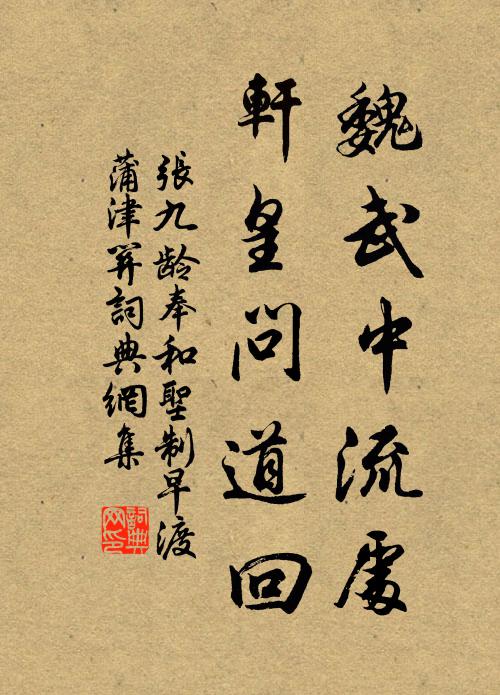 魏武中流處
軒皇問道回
張九龄奉和聖制早渡
蒲津關詞典網集
詞典网印